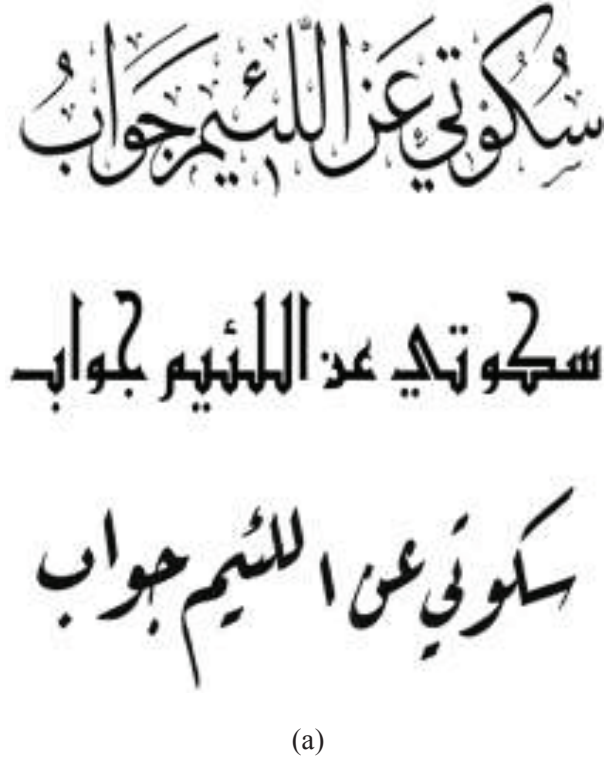 سُكُوْتِي عَنْ اللَّئِيمِ جَوَابُ
سكوتي عن اللئيم جواب
سكوتي عن اللئيم جواب
(a)